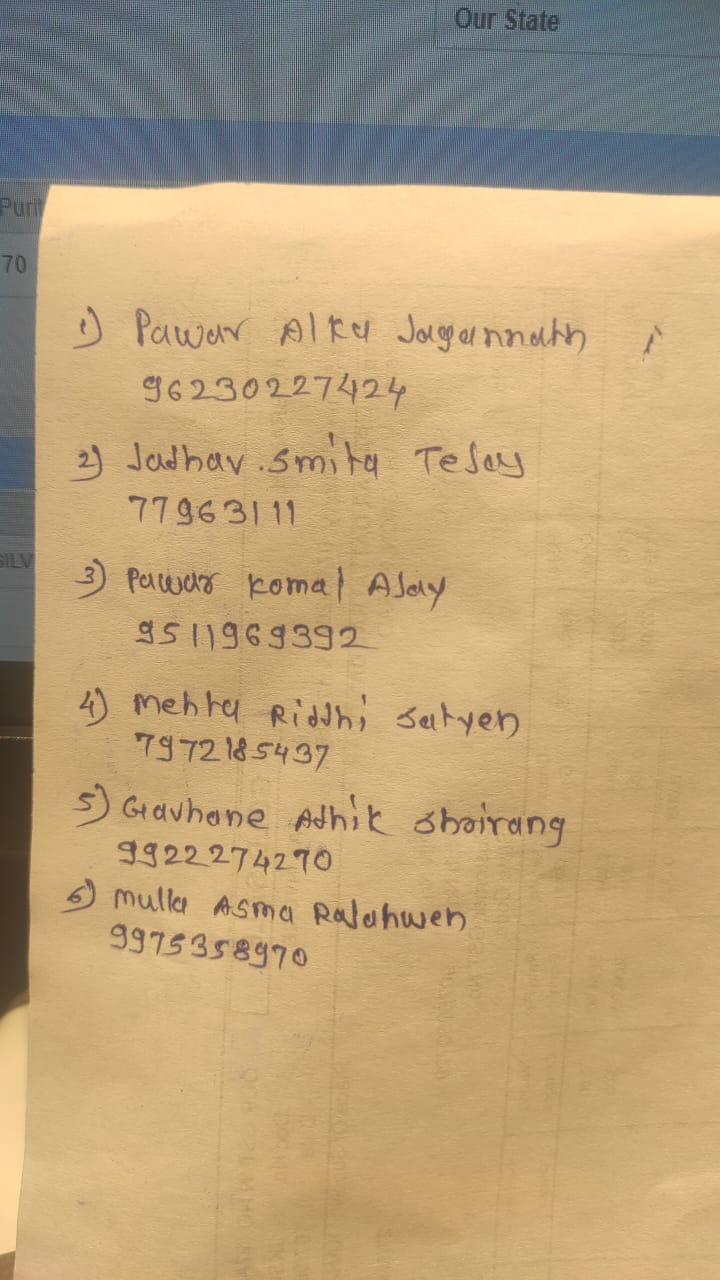 Our State
Purit
70
SILV
1) Pawar Alka Jagannath
96230227424
2) Jadhav. Smita Tejas
77963111
3) Pawar Komal Ajay
9511969392
4) Mehta Riddhi Satyen
7972185437
5) Gavhane Adhik Shrirang
9922274270
6) Mulla Asma
9975358970